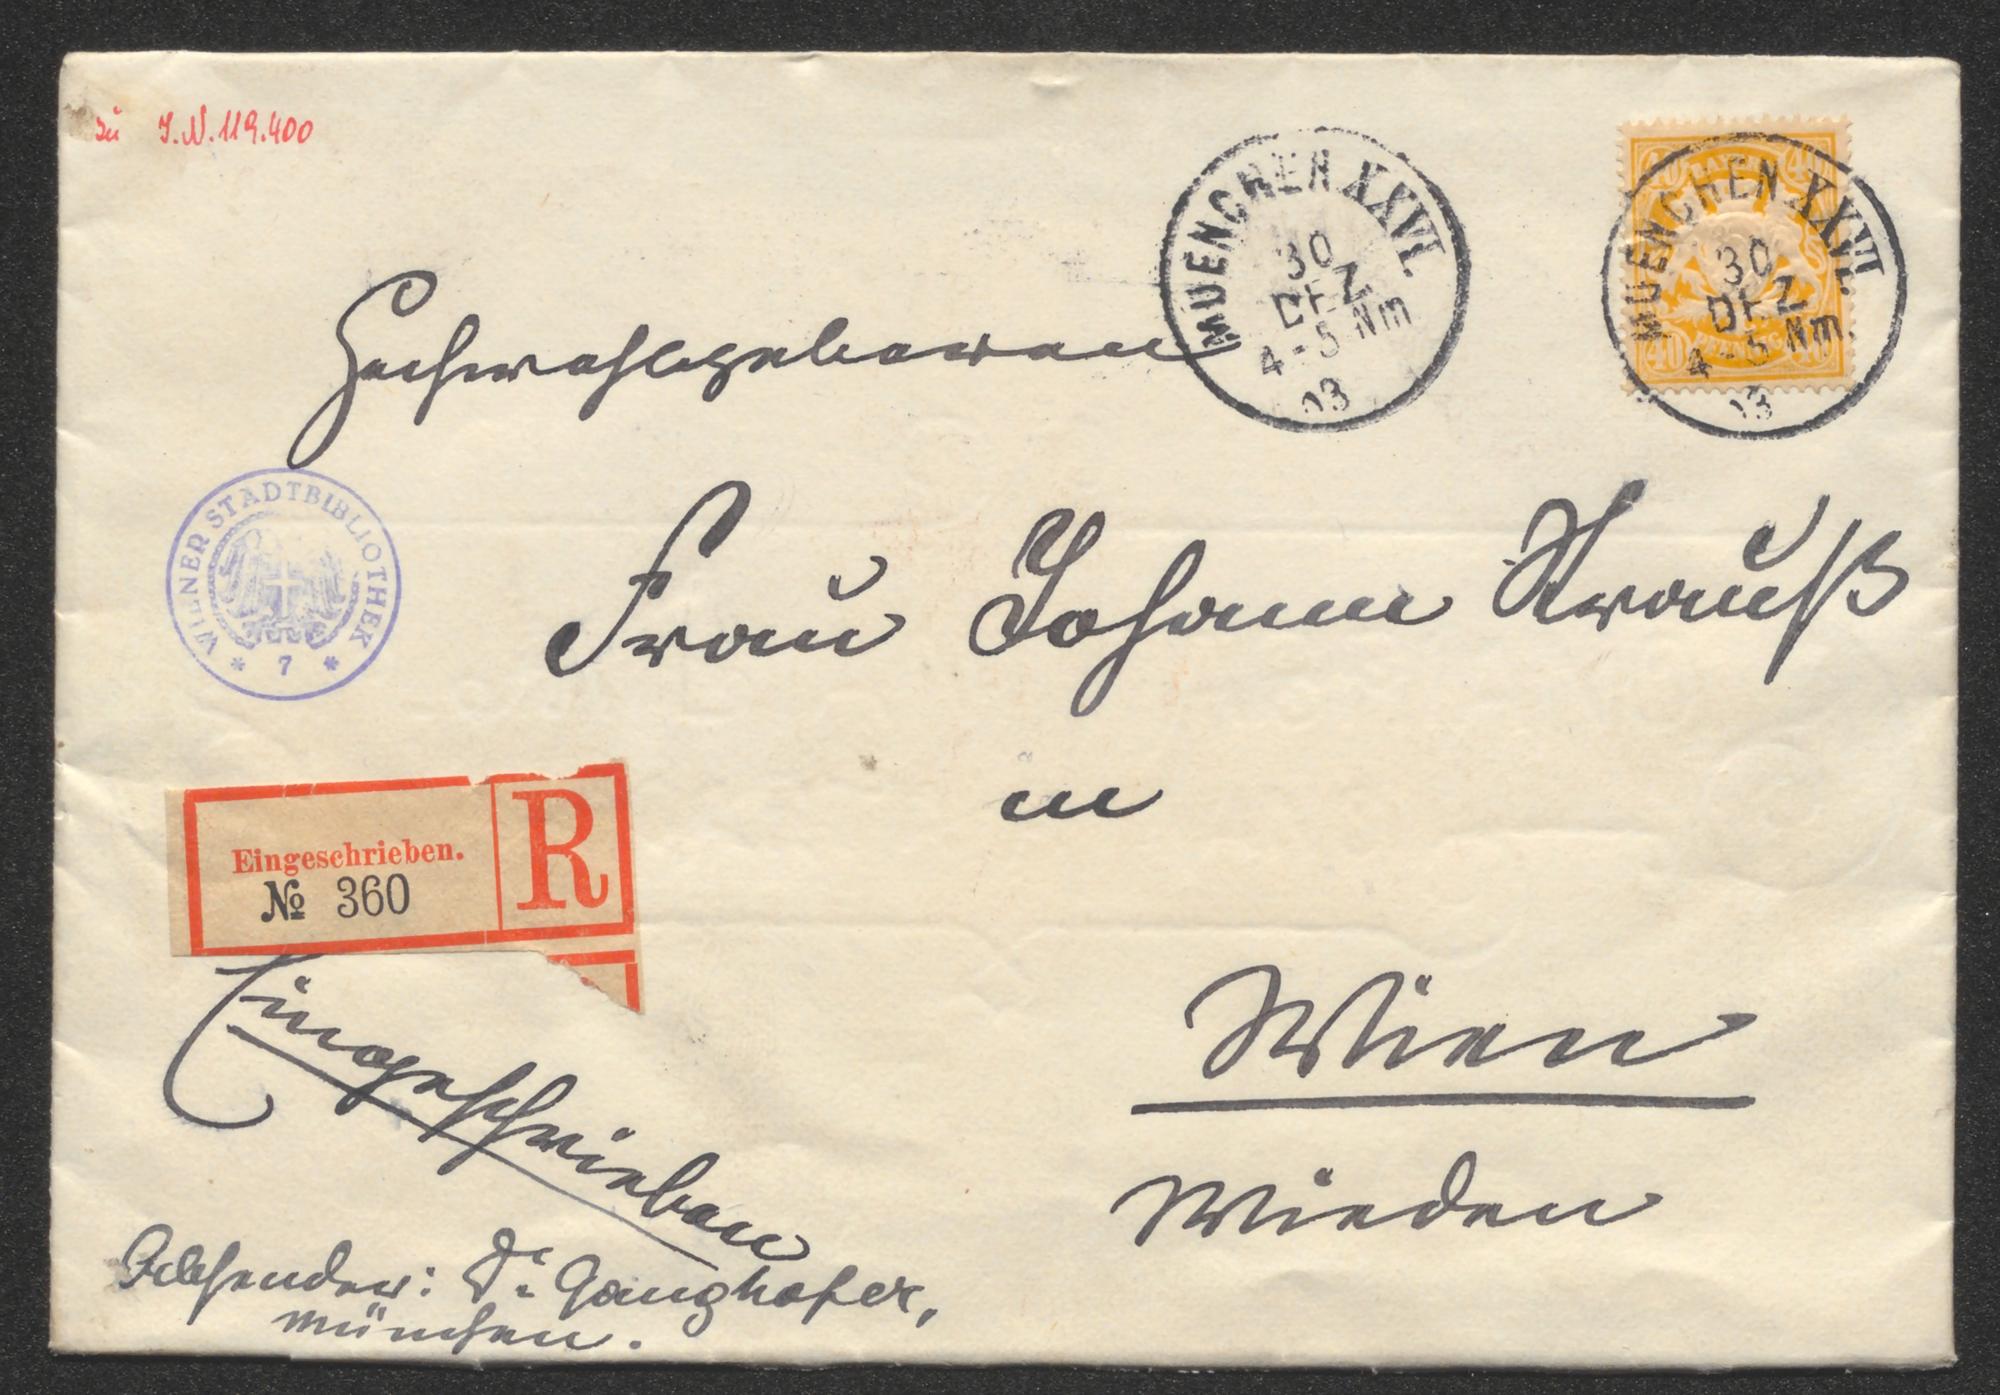 zu I.N. 119.400
MUENCHEN XXVI.
30
DEZ
4-5 Nm
03
BAYERN
40 40
MUENCHEN XXVI.
30
DEZ
4-5 Nm.
03
PFENNIG
40 40
Hochwohlgeboren
Frau Johann Strauß
WIENER STADTBIBLIOTHEK
* 7 *
in
Eingeschrieben.
№ 360
R
Wien
Wieden
Eingeschrieben
Absender: Dr Ganghofer,
München.